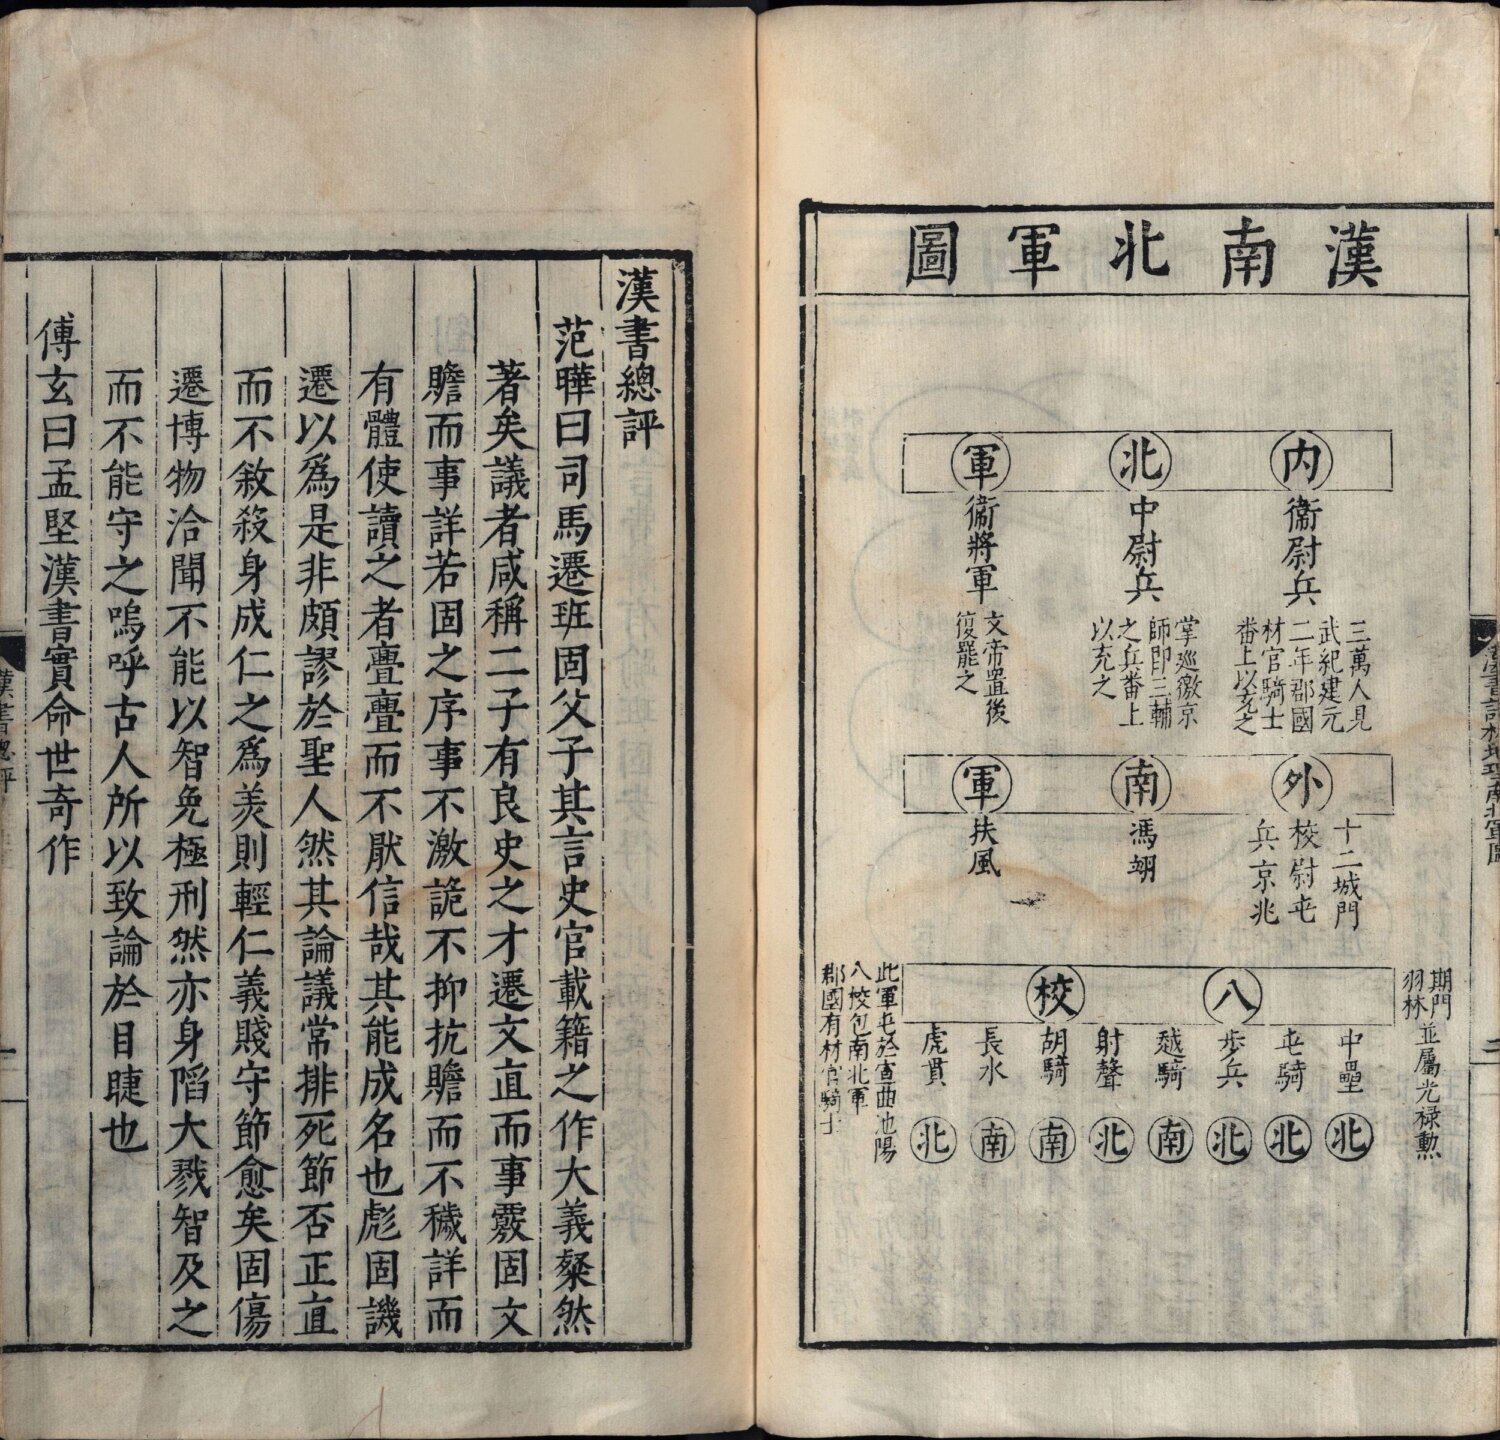 漢南北軍圖
內北軍
衞尉兵
三萬人見
武紀建元
二年郡國
材官騎士
番上以充之
中尉兵
掌廵徼京
師即三輔
之兵番上
以充之
衞將軍
文帝置後
復罷之
外南軍
十二城門
校尉屯
兵京兆
馮翊
扶風
期門
羽林
並屬光禄勲
八校
中壘北
屯騎北
步兵北
越騎南
射聲北
胡騎南
長水南
虎賁北
此軍屯於宣曲池陽
八校包南北軍
郡國有材官騎士
漢書總評
范曄曰司馬遷班固父子其言史官載籍之作大義粲然
著矣議者咸稱二子有良史之才遷文直而事覈固文
贍而事詳若固之序事不激詭不抑抗贍而不穢詳而
有體使讀之者亹亹而不厭信哉其能成名也彪固譏
遷以爲是非頗謬於聖人然其論議常排死節否正直
而不敘殺身成仁之爲美則輕仁義賤守節愈矣固傷
遷博物洽聞不能以智免極刑然亦身䧟大戮智及之
而不能守之嗚呼古人所以致論於目睫也
傅玄曰孟堅漢書實命世奇作
漢書總評